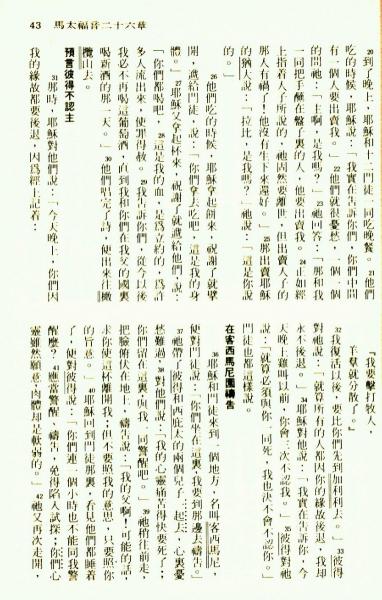 43 馬太福音二十六章
20到了晚上、耶穌和十二門徒一同吃晚餐。21他們
吃的時候、耶穌說：「我實在告訴你們、你們中間
有一個人要出賣我。」22他們就很憂愁、一個一個
的問祂、「主啊、是我嗎？」23祂回答：「那和我
一同把手蘸在盤子裏的人、他要出賣我。24正如經
上指着人子所說的、祂固然要離世、但出賣人子的
那人有禍了！他沒有生下來還好。」25那出賣耶穌
的猶大說：「拉比、是我嗎？」祂說：「這是你說
的。」
26他們吃的時候、耶穌拿起餅來、祝謝了就擘
開、遞給門徒、說：「你們拿去吃吧、這是我的身
體。」27耶穌又拿起杯來、祝謝了就遞給他們說：
「你們都喝吧、28這是我的血、是爲立約的、爲許
多人流出來、使罪得赦。29我告訴你們、從今以後
我必不再喝這葡萄酒、直到我和你們在我父的國裏
喝新酒的那一天。」30他們唱完了詩、便出來往橄
欖山去。
預言彼得不認主
31那時、耶穌對他們說：「今天晚上、你們因
我的緣故都要後退、因爲經上記着：
『我要擊打牧人、
羊羣就分散了。』
32我復活以後、要比你們先到加利利去。」33彼得
對祂說：「就算所有的人都因你的緣故後退、我却
永不後退。」34耶穌對他說：「我實在告訴你、今
天晚上雞叫以前、你會三次不認我。」35彼得對祂
說：「就算必須與你一同死、我也決不會不認你。」
門徒也都這樣說。
在客西馬尼園禱告
36耶穌和門徒來到一個地方、名叫客西馬尼、
便對門徒說：「你們坐在這裏、我要到那邊去禱告。」
37祂帶了彼得和西庇太的兩個兒子一起去、心裏憂
愁難過、38對他們說：「我的心靈痛苦得快要死了；
你們留在這裏、與我一同警醒吧。」39祂稍往前走、
把臉俯伏在地上、禱告說：「我的父啊！可能的話、
求你使這杯離開我；但不要照我的意思、只要照你
的旨意。」40耶穌回到門徒那裏、看見他們都睡着
了、便對彼得說：「你們連一個小時也不能同我警
醒麼？41應當警醒、禱告、免得陷入試探；你們心
靈雖然願意、肉體却是軟弱的。」42祂又再次走開、